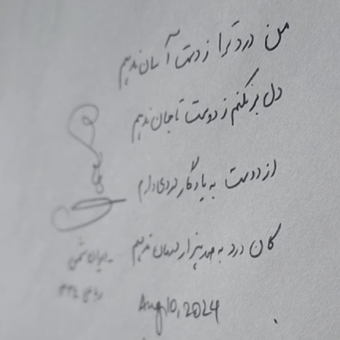 من درد ترا ز دست آسان ندهم
دل بر نکنم ز دوست تا جان ندهم
از دوست به یادگار دردی دارم
کان درد به صد هزار درمان ندهم
Aug 10, 2024